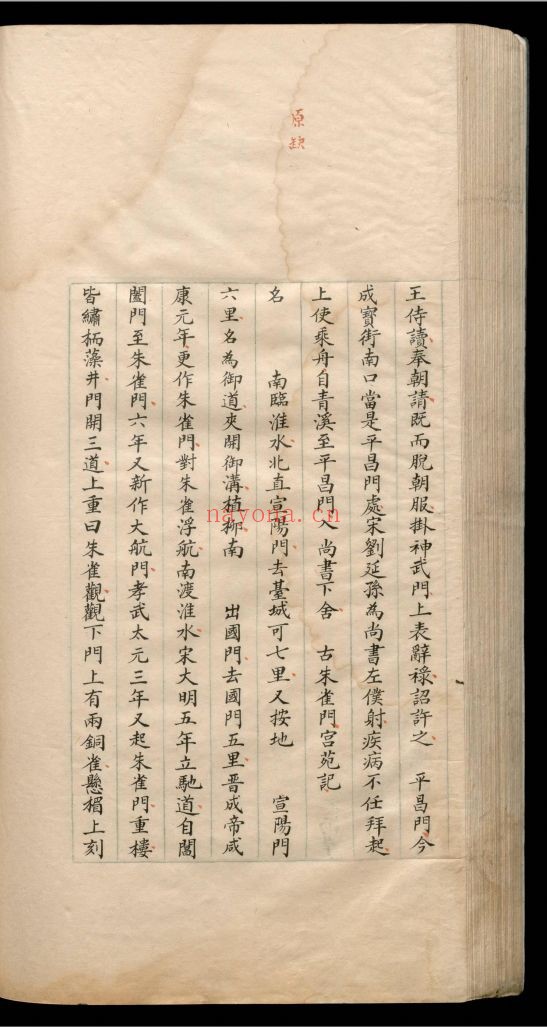 原缺
王侍讀奉朝請既而脫朝服掛神武門上表辭祿詔許之　平昌門今
成寳街南口當是平昌門處宋劉延孫為尚書左僕射疾病不任拜起
上使乘舟自青溪至平昌門入尚書下舍　古朱雀門宮苑記
名　　南臨淮水北直宣陽門去臺城可七里又按地　宣陽門
六里名為御道夾開御溝植柳南　　出國門去國門五里晉成帝咸
康元年更作朱雀門對朱雀浮航南渡淮水宋大明五年立馳道自閶
闔門至朱雀門六年又新作大航門孝武太元三年又起朱雀門重樓
皆繡栭藻井門開三道上重曰朱雀觀觀下門上有兩銅雀懸楣上刻
nayona.cn